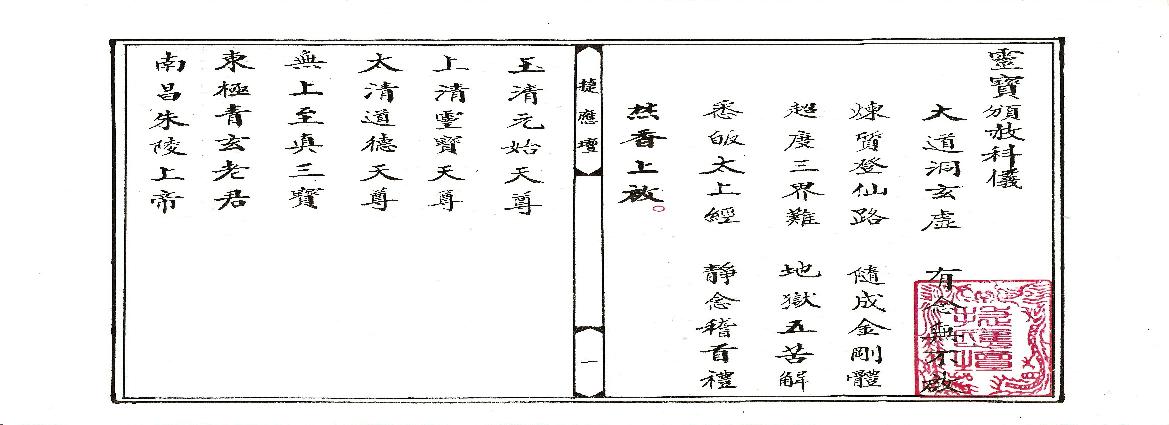 靈寶頒赦科儀
大道洞玄虛 有念無不啟
煉質登仙路 隨成金剛體
超度三界難 地獄五苦解
悉皈太上經 靜念稽首禮
焚香上啟
捷應壇
一
玉清元始天尊
上清靈寶天尊
太清道德天尊
無上至真三寶
東極青玄老君
南昌朱陵上帝